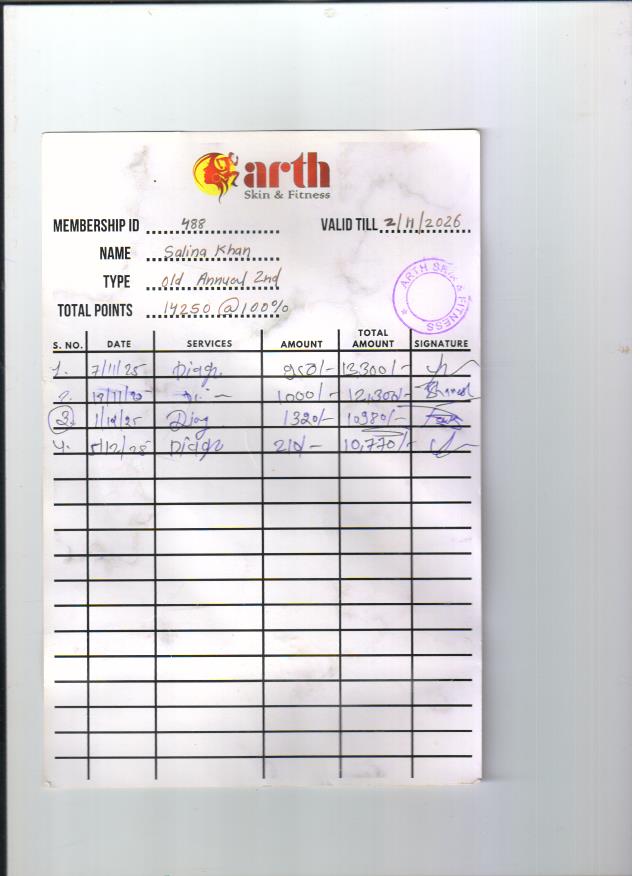 arth
Skin & Fitness
MEMBERSHIP ID 488 VALID TILL 2/11/2026
NAME Salina Khan
TYPE old Annual 2nd
TOTAL POINTS 14250 @100%
ARTH SKIN & FITNESS
S. NO. DATE SERVICES AMOUNT TOTAL AMOUNT SIGNATURE
1. 7/11/25 950/- 13300/-
2. 1000/- 12,300/-
3. 1/12/25 1320/- 10980/-
4. 5/12/25 210/- 10,770/-